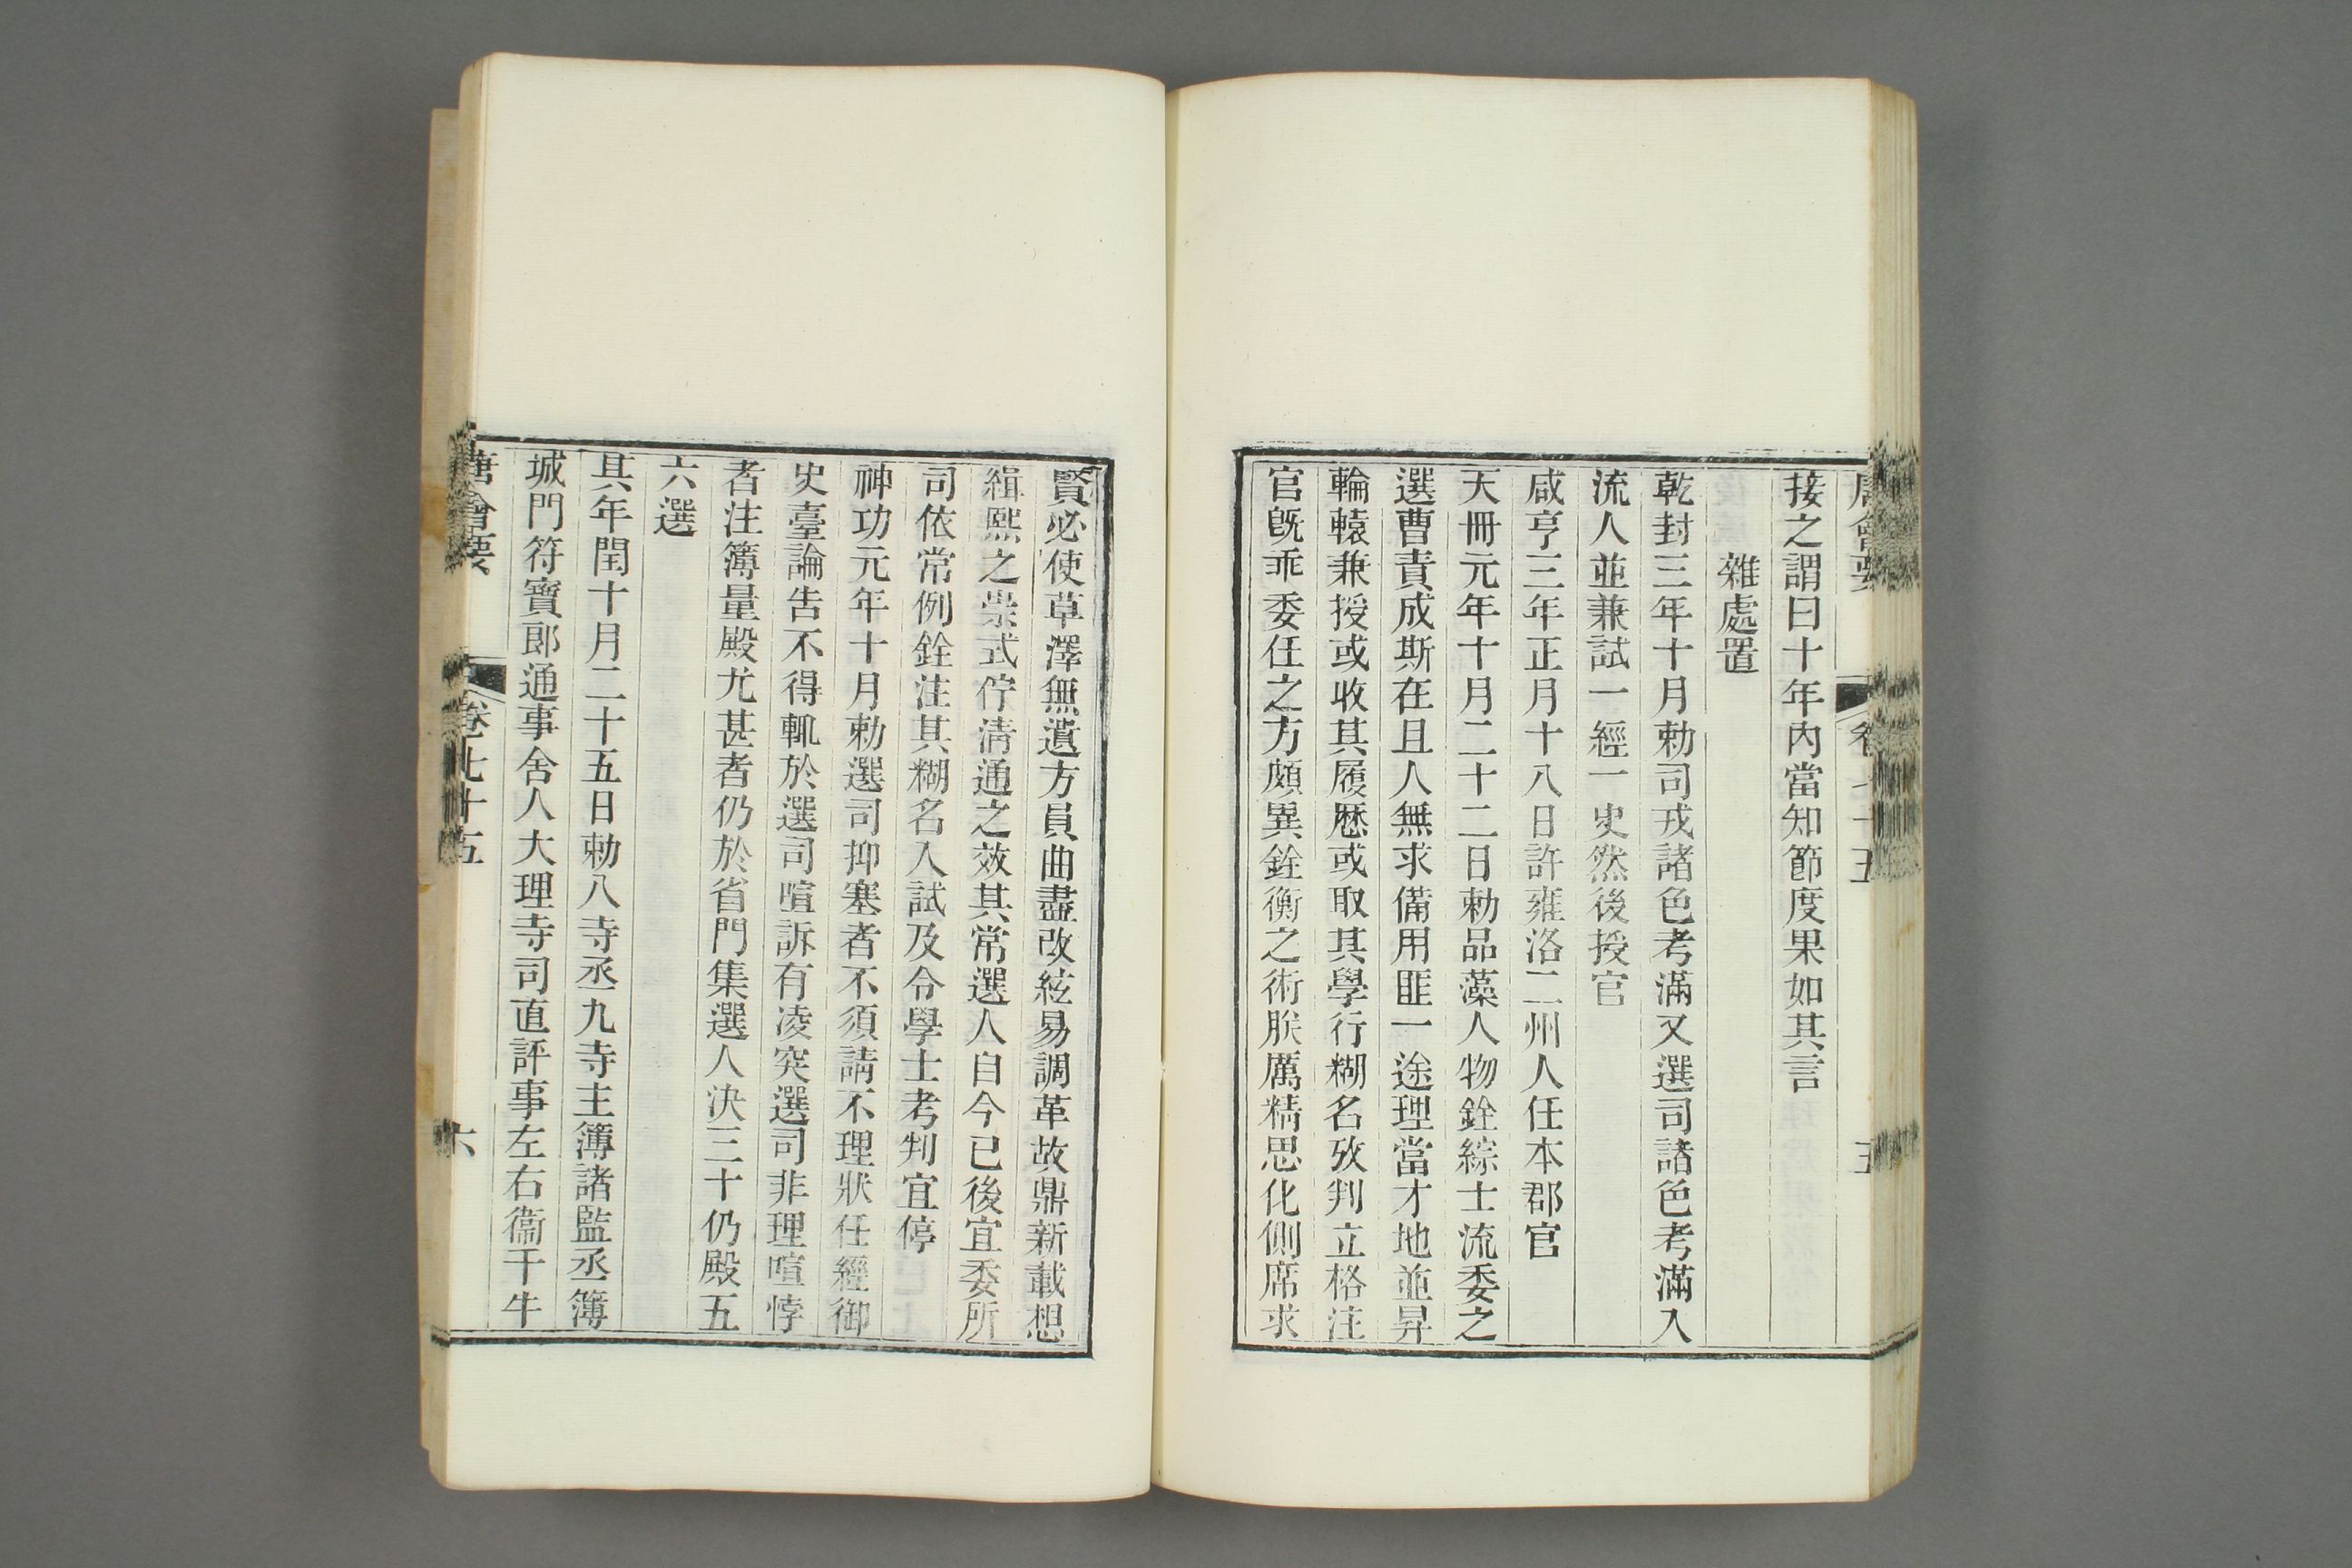 唐會要 卷七十五 五
接之謂曰十年內當知節度果如其言
雜處置
乾封三年十月勅司戎諸色考滿又選司諸色考滿入
流人並兼試一經一史然後授官
咸亨三年正月十八日許雍洛二州人任本郡官
天冊元年十月二十二日勅品藻人物銓綜士流委之
選曹責成斯在且人無求備用匪一途理當才地並昇
輪轅兼授或收其履歷或取其學行糊名攷判立格注
官旣乖委任之方頗異銓衡之術朕厲精思化側席求
賢必使草澤無遺方員曲盡改絃易調革故鼎新載想
緝熙之崇式佇清通之效其常選人自今已後宜委所
司依常例銓注其糊名入試及令學士考判宜停
神功元年十月勅選司抑塞者不須請不理狀任經御
史臺論告不得輒於選司喧訴有凌突選司非理喧悖
者注簿量殿尤甚者仍於省門集選人決三十仍殿五
六選
其年閏十月二十五日勅八寺丞九寺主簿諸監丞簿
城門符寶郎通事舍人大理寺司直評事左右衞千牛
唐會要 卷七十五 六